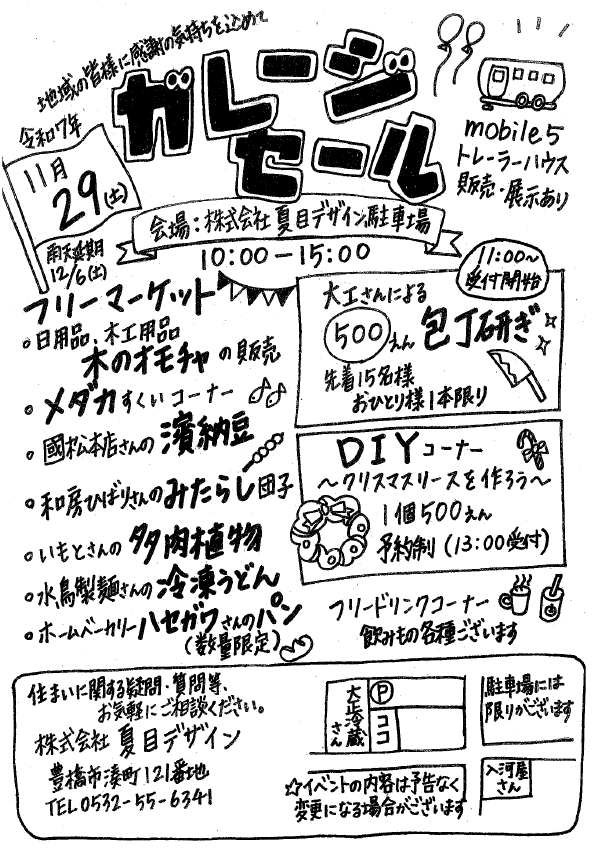 地域の皆様に感謝の気持ちを込めて
ガレージ
セール
令和7年
11月
29(土)
雨天延期
12/6(土)
mobile5
トレーラーハウス
販売・展示あり
会場：株式会社 夏目デザイン駐車場
10:00－15:00
フリーマーケット
○日用品、木工用品
木のオモチャの販売
○メダカすくいコーナー
○國松本店さんの濱納豆
○和房ひばりさんのみたらし団子
○いもとさんの多肉植物
○水鳥製麺さんの冷凍うどん
○ホームベーカリーハセガワさんのパン
(数量限定)
11:00～
受付開始
大工さんによる
500えん 包丁研ぎ
先着15名様
おひとり様1本限り
DIYコーナー
～クリスマスリースを作ろう～
1個500えん
予約制(13:00受付)
フリードリンクコーナー
飲みもの各種ございます
住まいに関する疑問・質問等、
お気軽にご相談ください。
株式会社 夏目デザイン
豊橋市湊町121番地
TEL0532-55-6341
大正冷蔵さん
P
ココ
駐車場には
限りがございます
入河屋
さん
☆イベントの内容は予告なく
変更になる場合がございます